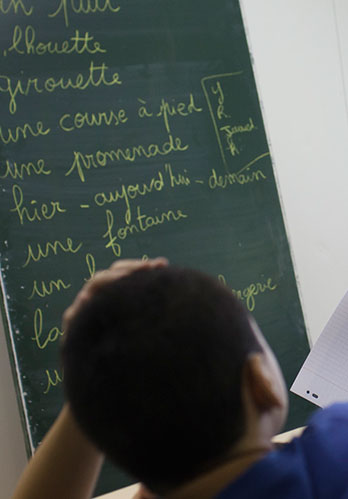 un
lhouette
girouette
une course à pied
une promenade
hier - aujourd'hui - demain
une fontaine
un
la
y
R.